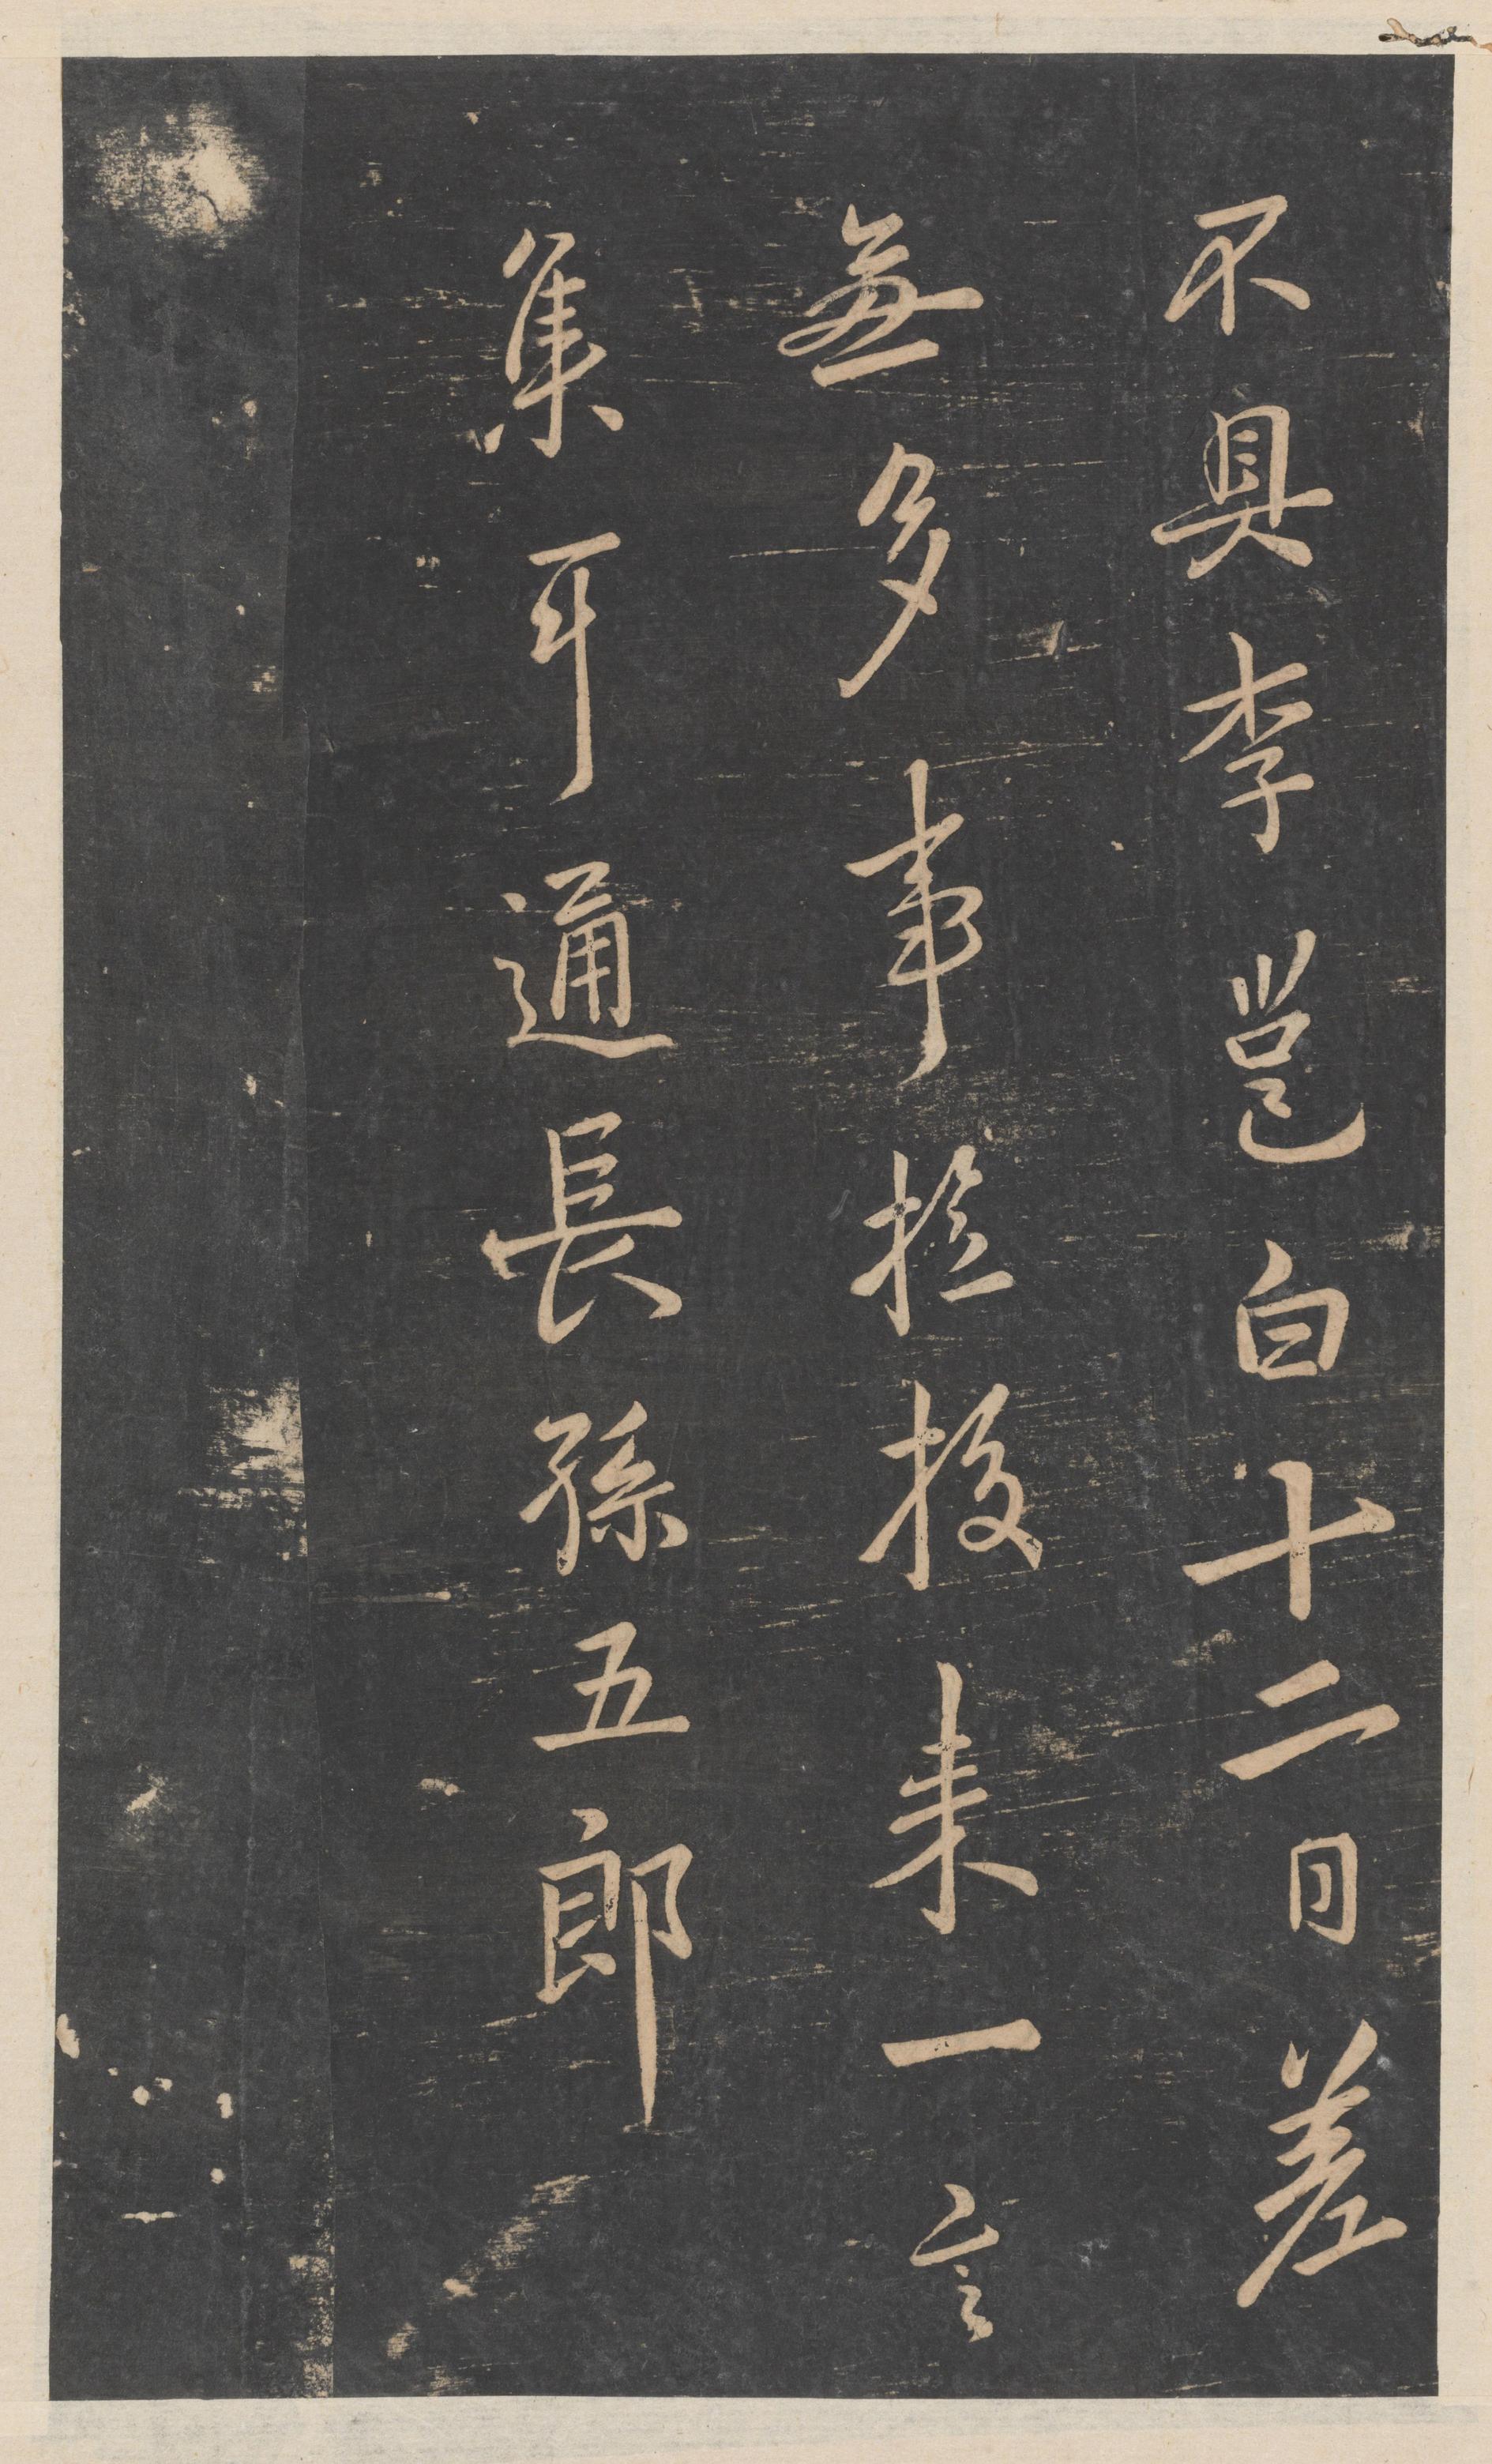 不具李邕白十二日差
無多事撿挍来一言
集耳通長孫五郎